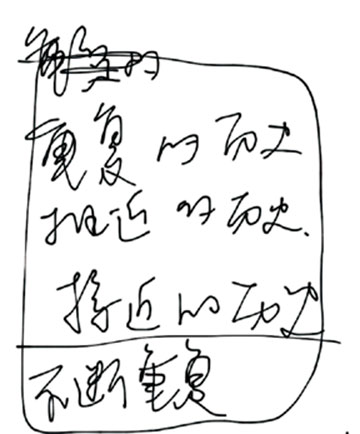 重复的历史
推近的历史.
接近的历史
不断重复